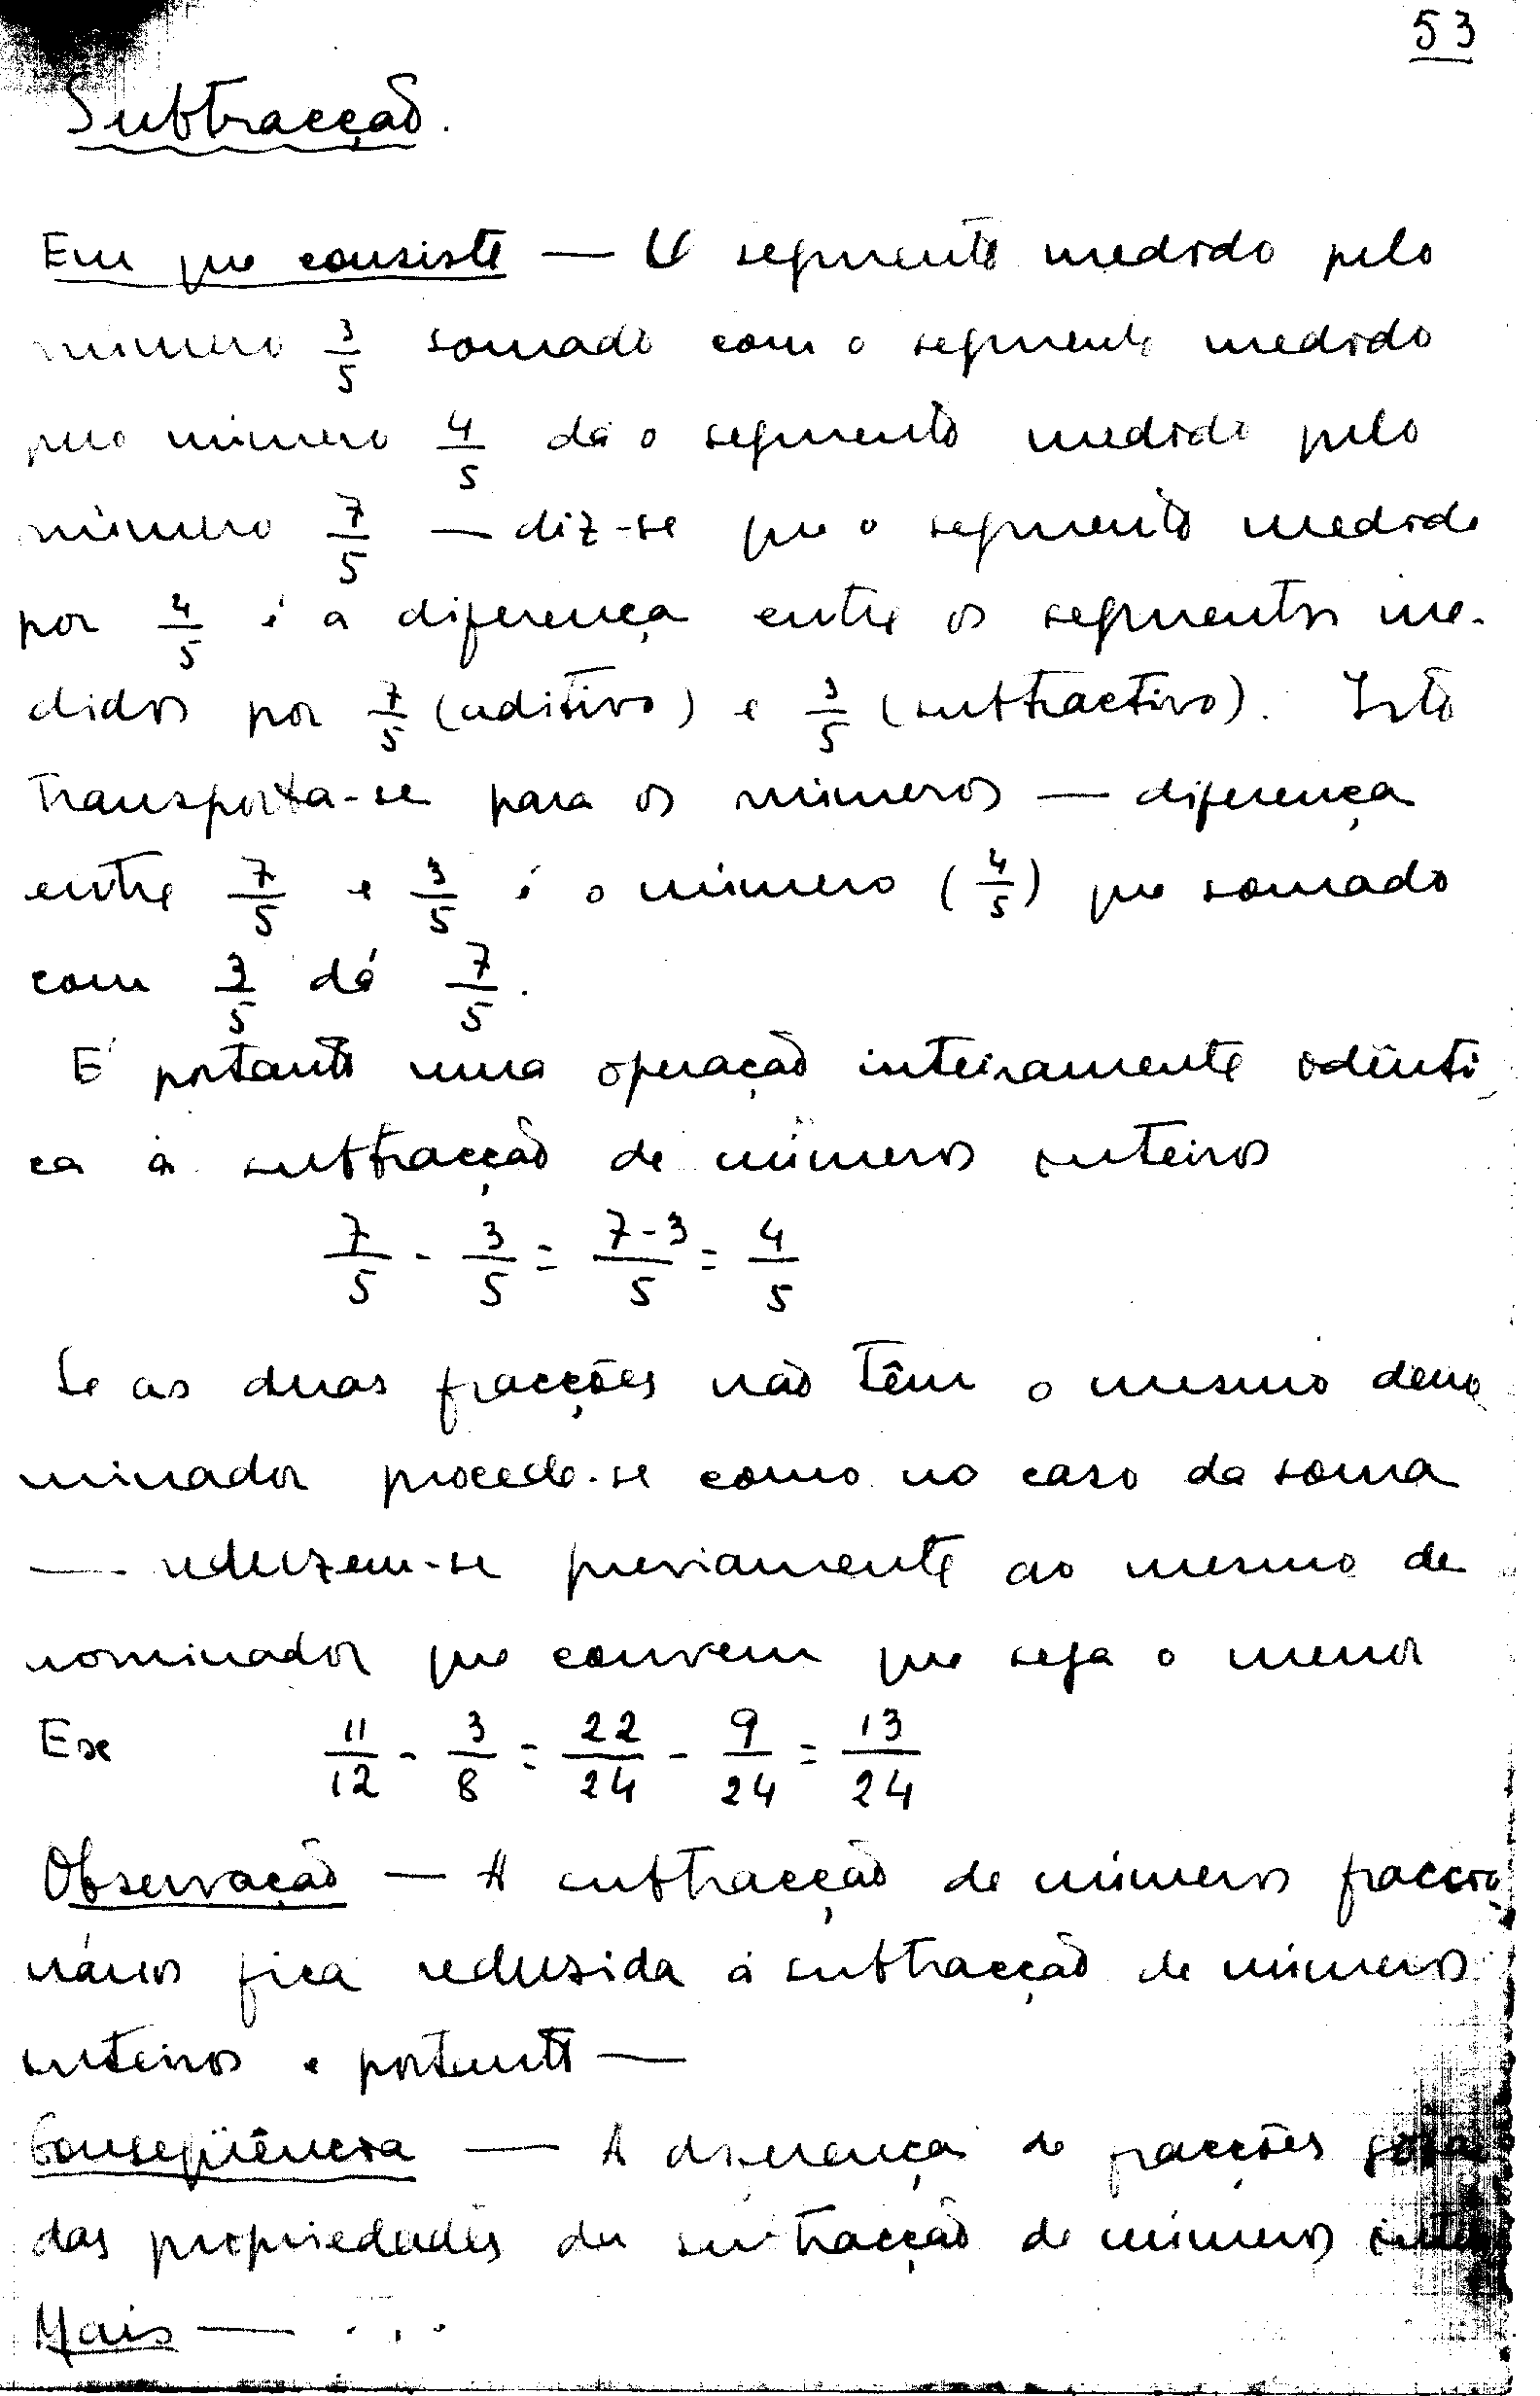 53
Subtracção.
Em que consiste — O segmento medido pelo
número 3/5 somado com o segmento medido
pelo número 4/5 dá o segmento medido pelo
número 7/5 — diz-se que o segmento medido
por 4/5 é a diferença entre os segmentos me-
didos por 7/5 (aditivo) e 3/5 (subtractivo). Isto
transporta-se para os números — diferença
entre 7/5 e 3/5 é o número (4/5) que somado
com 3/5 dá 7/5.
É portanto uma operação inteiramente idênti
ca à subtracção de números inteiros
7/5 - 3/5 = 7-3/5 = 4/5
Se as duas fracções não têm o mesmo deno
minador procede-se como no caso da soma
— reduzem-se previamente ao mesmo de
nominador que convem que seja o menor
Ex 11/12 - 3/8 = 22/24 - 9/24 = 13/24
Observação — A subtracção de números fraccio
nários fica reduzida à subtracção de números
inteiros e portanto —
Conseqüência — A diferença de fracções goza
das propriedades da subtracção de números
Mais — . . .